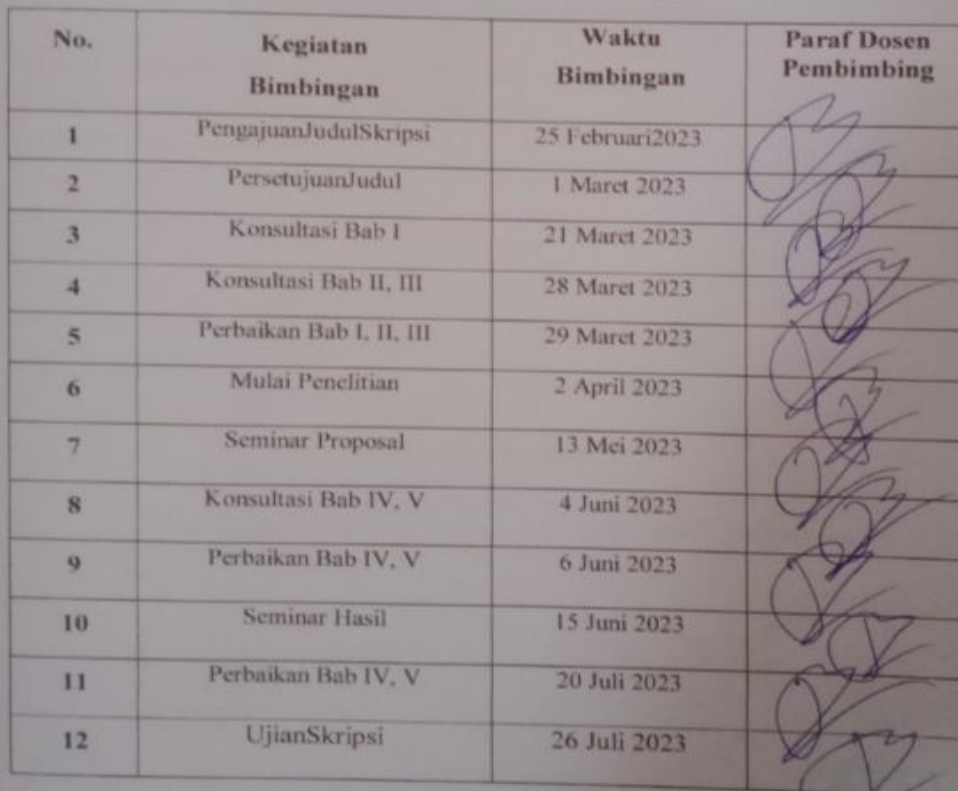 No. Kegiatan Bimbingan Waktu Bimbingan Paraf Dosen Pembimbing
1 PengajuanJudulSkripsi 25 Februari2023
2 PersetujuanJudul 1 Maret 2023
3 Konsultasi Bab I 21 Maret 2023
4 Konsultasi Bab II, III 28 Maret 2023
5 Perbaikan Bab I, II, III 29 Maret 2023
6 Mulai Penelitian 2 April 2023
7 Seminar Proposal 13 Mei 2023
8 Konsultasi Bab IV, V 4 Juni 2023
9 Perbaikan Bab IV, V 6 Juni 2023
10 Seminar Hasil 15 Juni 2023
11 Perbaikan Bab IV, V 20 Juli 2023
12 UjianSkripsi 26 Juli 2023